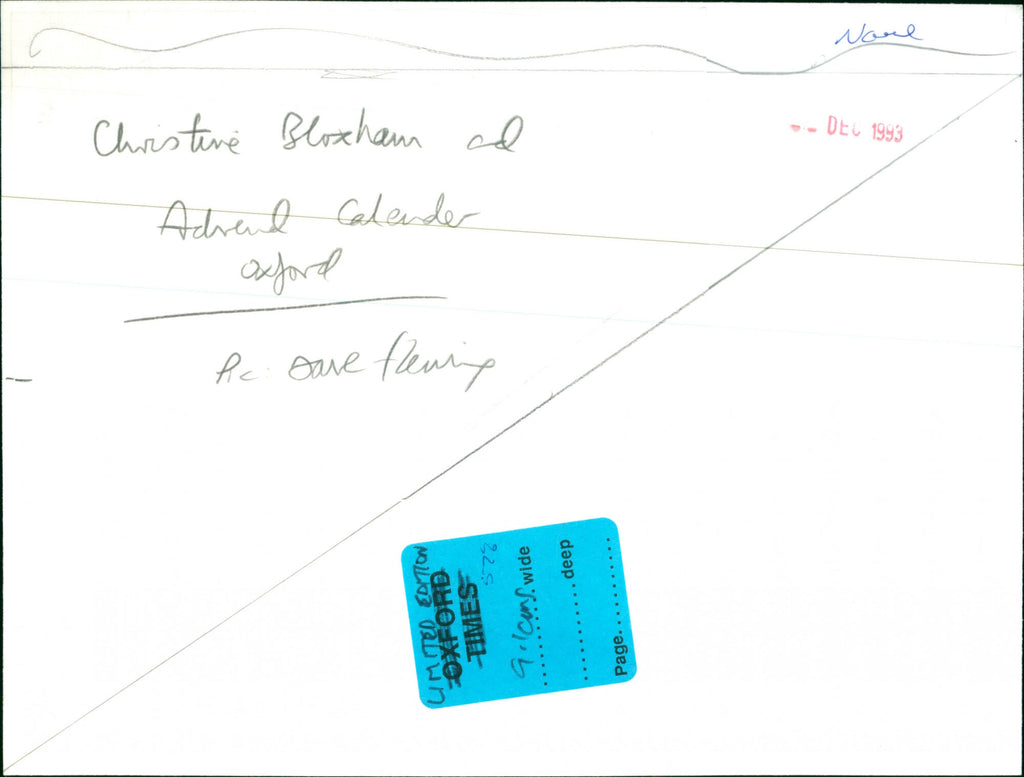 DEC 1993
Christine Bloxham ad
Advend Calender
Oxford
Pic: Dave Fleming
LIMITED EDITION
OXFORD
TIMES
528
9.1cms wide
deep
Page